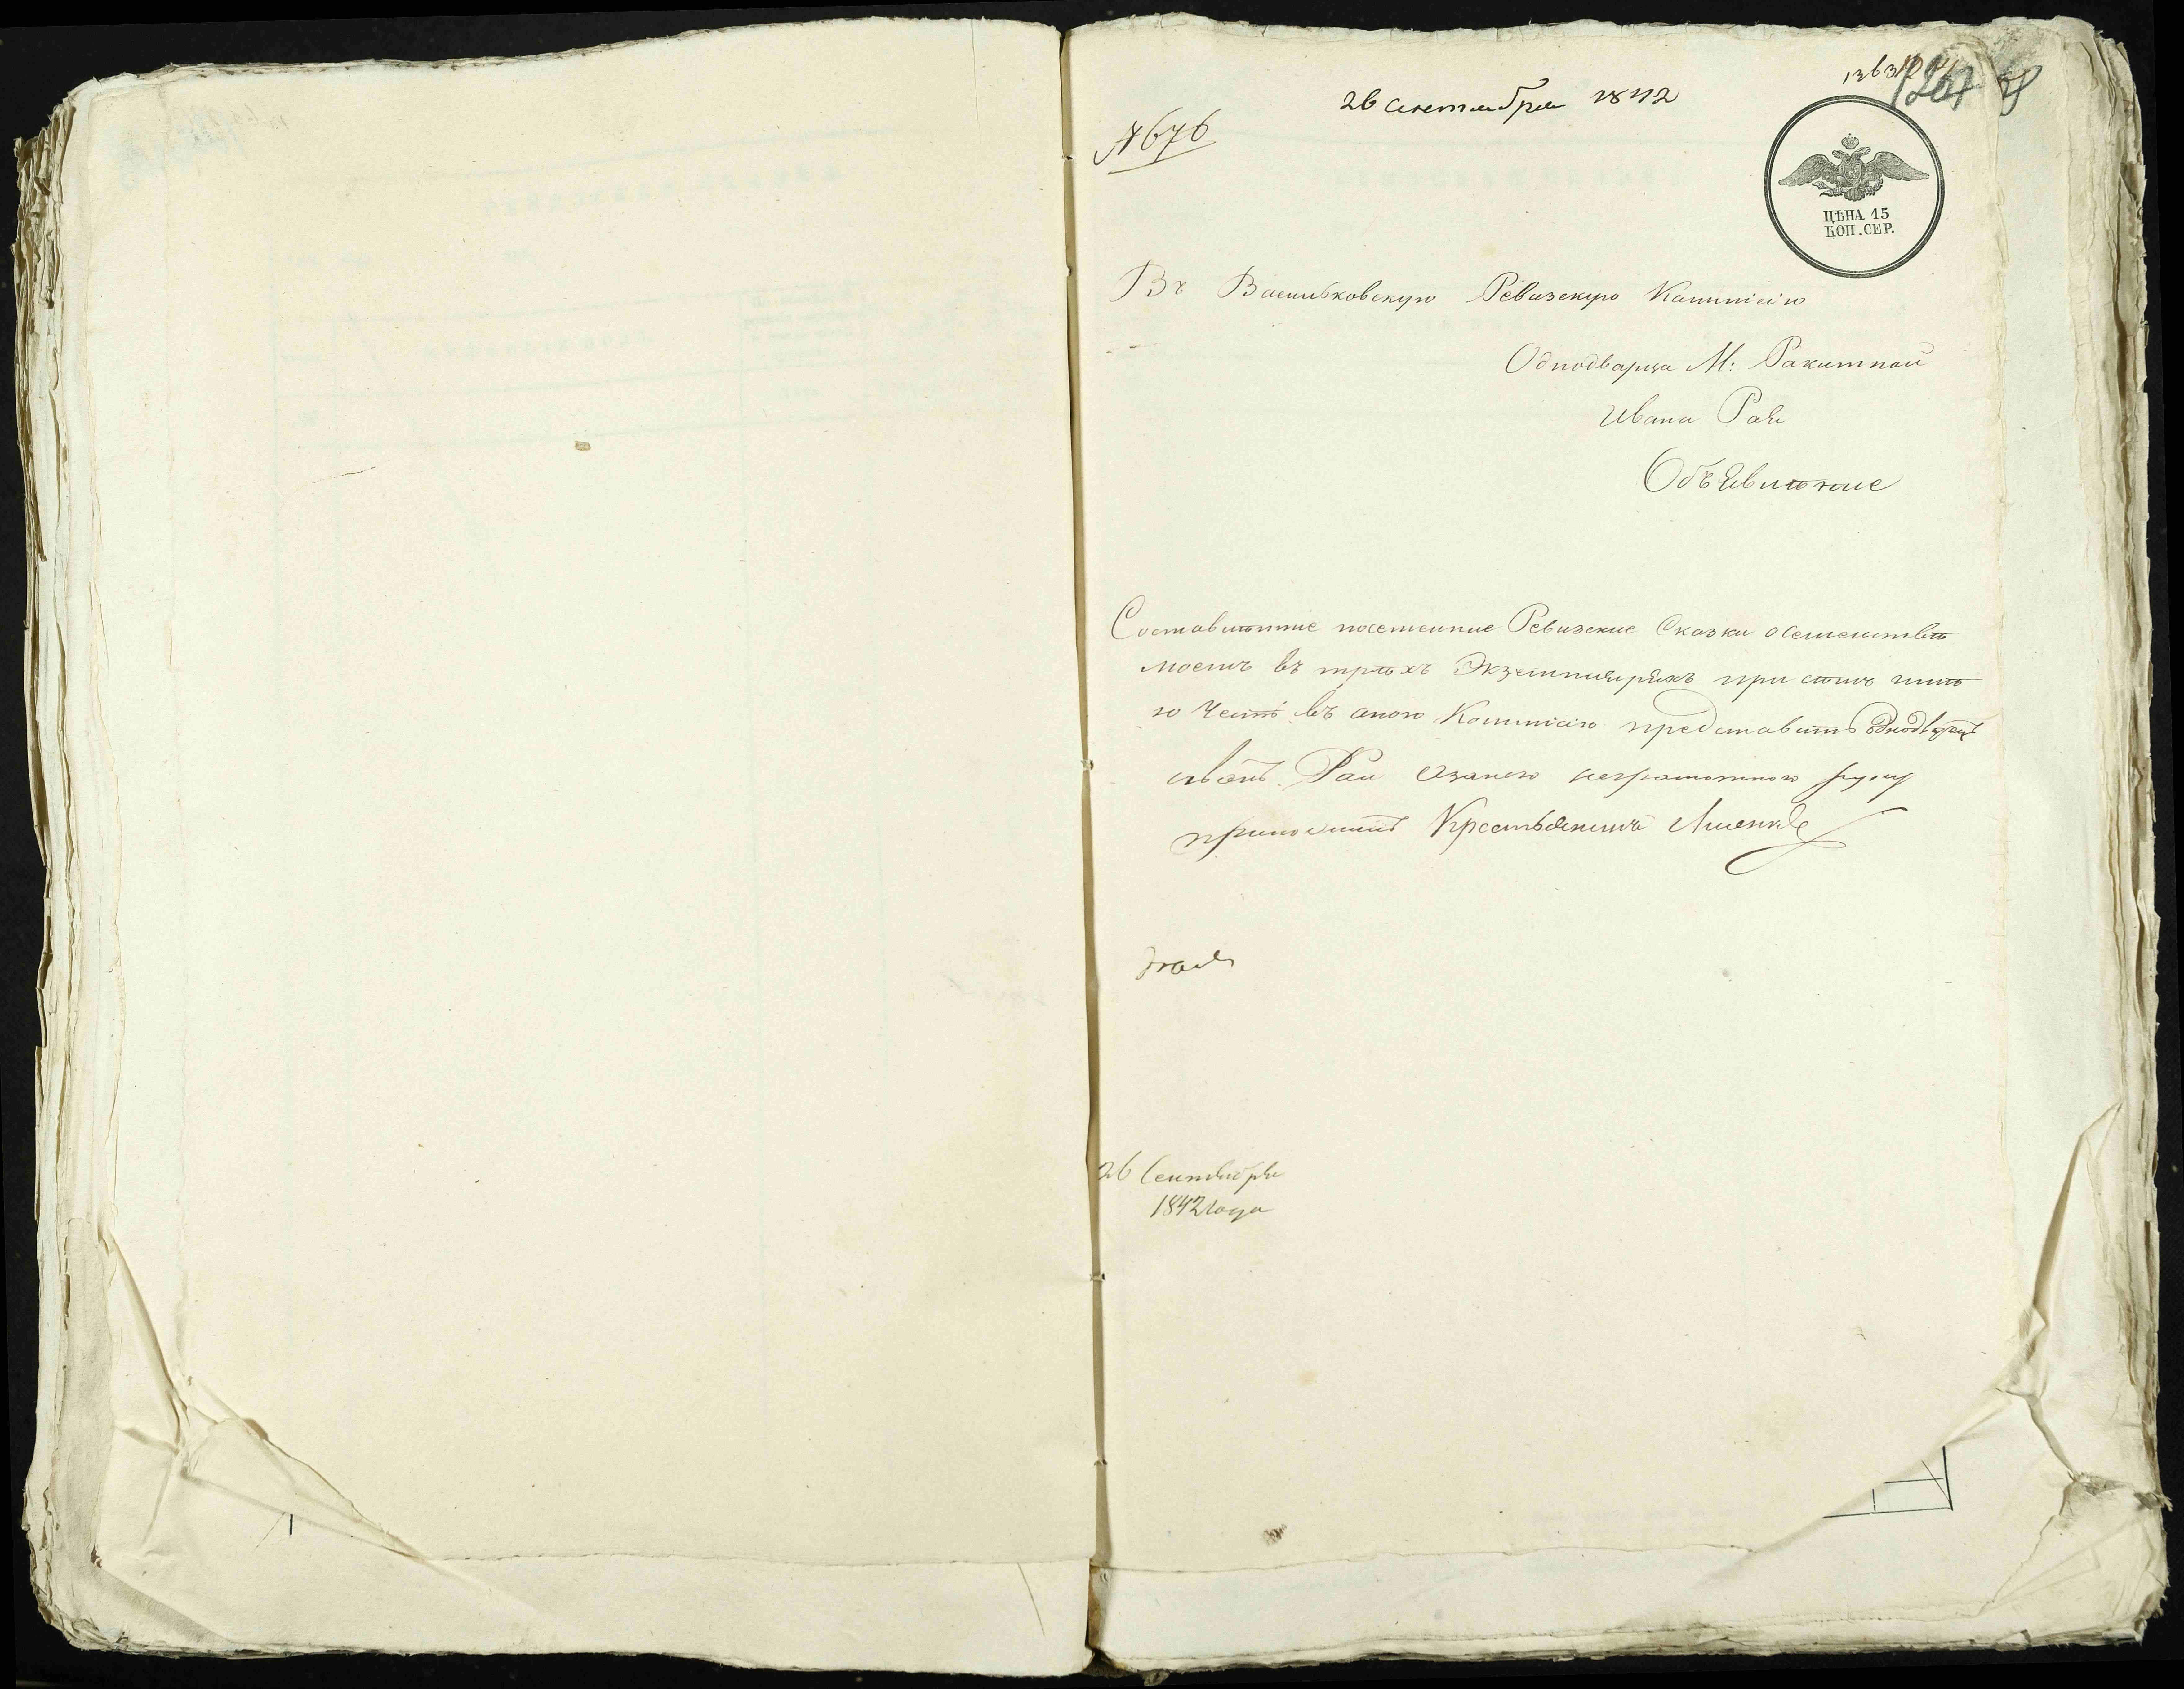 26 сентября 1842
№ 676
ЦѢНА 15
КОП. СЕР.
Въ Васильковскую Ревизскую Коммисію
Однодварца М: Ракитной
Ивана Рая
Объявление
Составленные посемейные Ревизские Сказки осемействе
моемъ въ трехъ Экземплярахъ при семъ име
ю честь въ оную Коммисію представить Однодворецъ
Иванъ Рай Азанего неграмотного руку
приложилъ Крестьянинъ
26 Сентября
1842 года